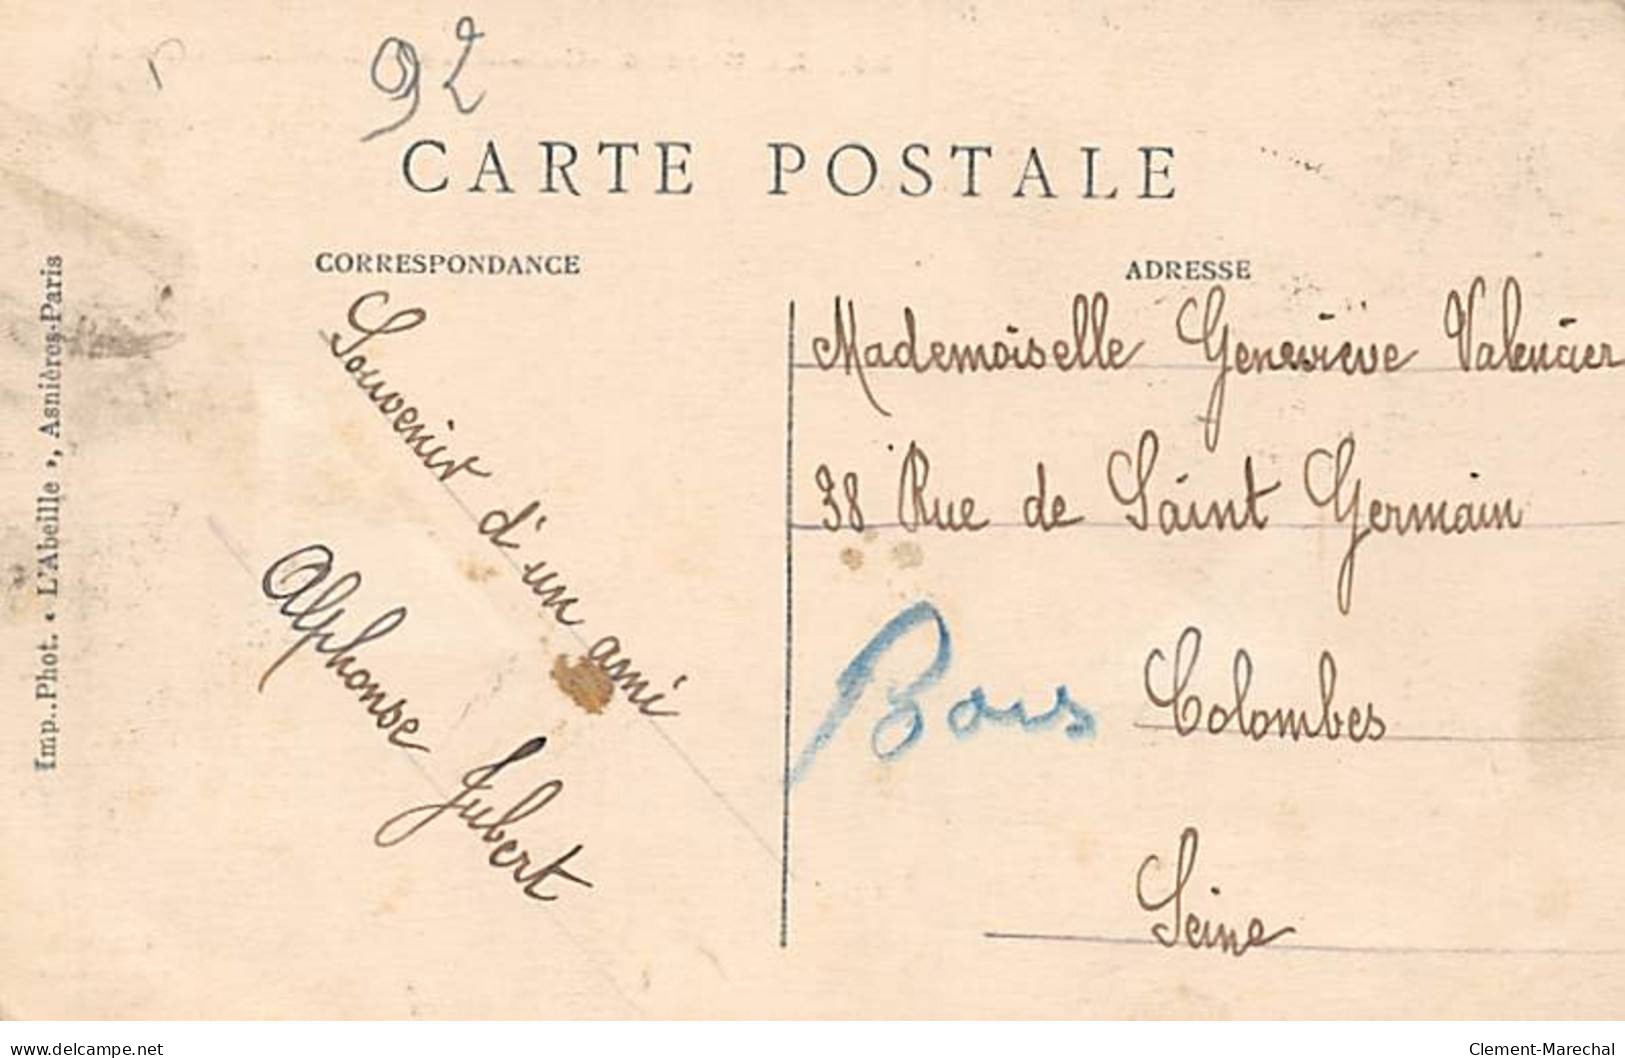 92
CARTE POSTALE
CORRESPONDANCE
Souvenir d'un ami
Alphonse Jubert
ADRESSE
Mademoiselle Geneviève Valencier
38 Rue de Saint Germain
Colombes
Seine
Imp..Phot. « L'Abeille », Asnières-Paris
www.delcampe.net
Clement-Marechal